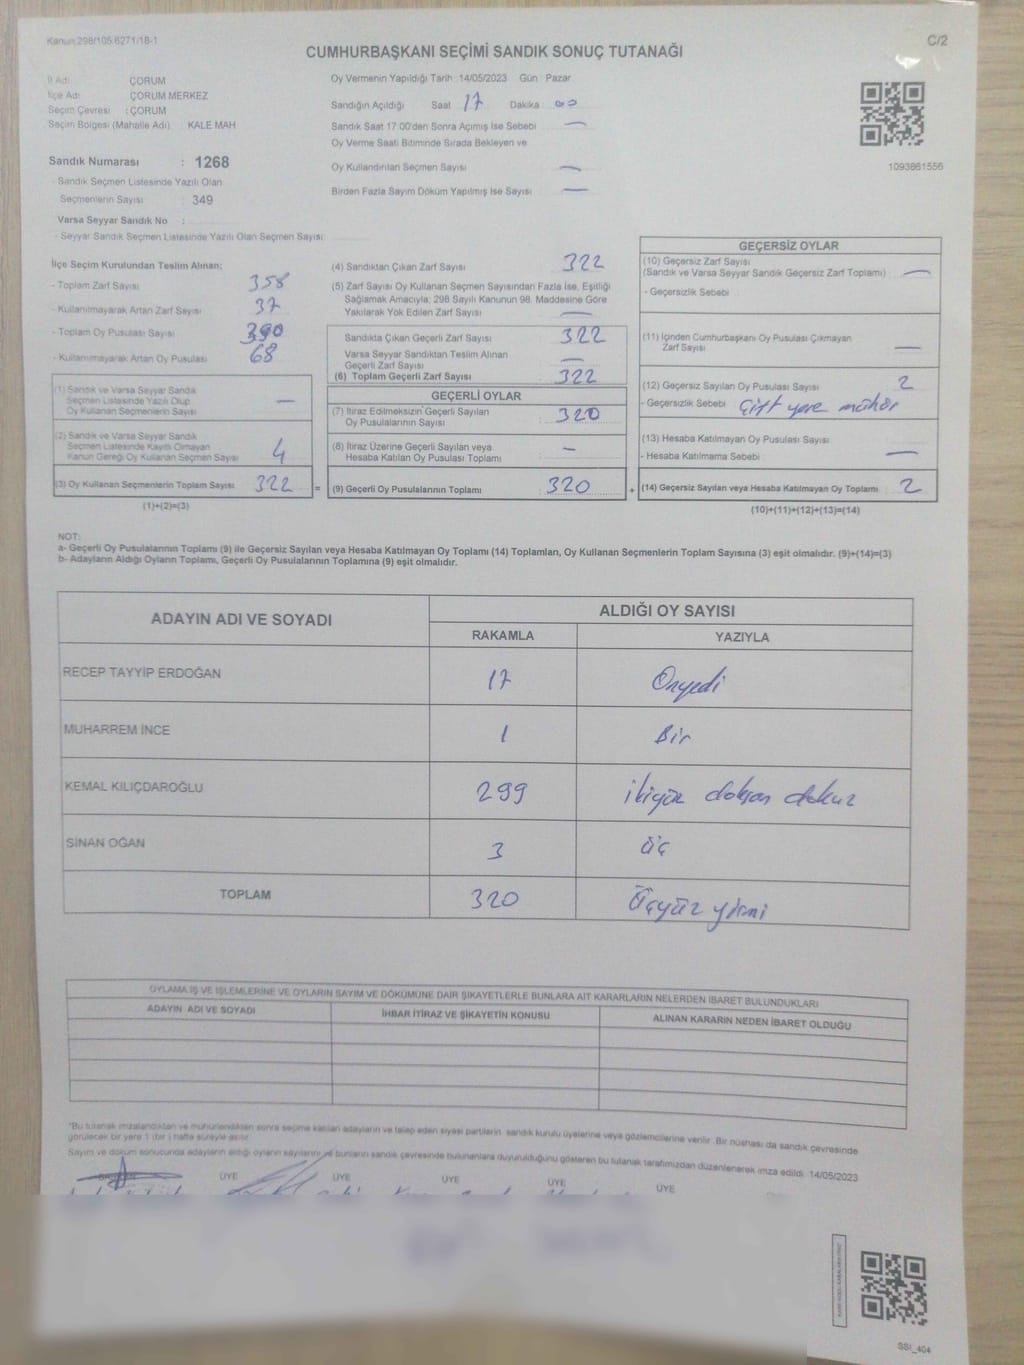 Kanun 298/105.6271/18-1
C/2
CUMHURBAŞKANI SEÇİMİ SANDIK SONUÇ TUTANAĞI
İl Adı : ÇORUM
İlçe Adı : ÇORUM MERKEZ
Seçim Çevresi : ÇORUM
Seçim Bölgesi (Mahalle Adı) KALE MAH
Sandık Numarası : 1268
- Sandık Seçmen Listesinde Yazılı Olan
Seçmenlerin Sayısı : 349
Varsa Seyyar Sandık No :
- Seyyar Sandık Seçmen Listesinde Yazılı Olan Seçmen Sayısı:
Oy Vermenin Yapıldığı Tarih 14/05/2023 Gün Pazar
Sandığın Açıldığı Saat 17 Dakika 00
Sandık Saat 17.00'den Sonra Açılmış İse Sebebi —
Oy Verme Saati Bitiminde Sırada Bekleyen ve
Oy Kullandırılan Seçmen Sayısı —
Birden Fazla Sayım Döküm Yapılmış İse Sayısı —
1093861556
İlçe Seçim Kurulundan Teslim Alınan:
- Toplam Zarf Sayısı 358
- Kullanılmayarak Artan Zarf Sayısı 37
- Toplam Oy Pusulası Sayısı 390
- Kullanılmayarak Artan Oy Pusulası 68
(1) Sandık ve Varsa Seyyar Sandık
Seçmen Listesinde Yazılı Olup
Oy Kullanan Seçmenlerin Sayısı —
(2) Sandık ve Varsa Seyyar Sandık
Seçmen Listesinde Kayıtlı Olmayan
Kanun Gereği Oy Kullanan Seçmen Sayısı 4
(3) Oy Kullanan Seçmenlerin Toplam Sayısı 322 =
(1)+(2)=(3)
(4) Sandıktan Çıkan Zarf Sayısı 322
(5) Zarf Sayısı Oy Kullanan Seçmen Sayısından Fazla İse, Eşitliği
Sağlamak Amacıyla; 298 Sayılı Kanunun 98. Maddesine Göre
Yakılarak Yok Edilen Zarf Sayısı —
Sandıkta Çıkan Geçerli Zarf Sayısı 322
Varsa Seyyar Sandıktan Teslim Alınan
Geçerli Zarf Sayısı —
(6) Toplam Geçerli Zarf Sayısı 322
GEÇERLİ OYLAR
(7) İtiraz Edilmeksizin Geçerli Sayılan
Oy Pusulalarının Sayısı 320
(8) İtiraz Üzerine Geçerli Sayılan veya
Hesaba Katılan Oy Pusulası Toplamı —
(9) Geçerli Oy Pusulalarının Toplamı 320 +
GEÇERSİZ OYLAR
(10) Geçersiz Zarf Sayısı
(Sandık ve Varsa Seyyar Sandık Geçersiz Zarf Toplamı) —
- Geçersizlik Sebebi :
(11) İçinden Cumhurbaşkanı Oy Pusulası Çıkmayan
Zarf Sayısı —
(12) Geçersiz Sayılan Oy Pusulası Sayısı 2
- Geçersizlik Sebebi : Çift yere mühür
(13) Hesaba Katılmayan Oy Pusulası Sayısı
- Hesaba Katılmama Sebebi : —
(14) Geçersiz Sayılan veya Hesaba Katılmayan Oy Toplamı 2
(10)+(11)+(12)+(13)=(14)
NOT:
a- Geçerli Oy Pusulalarının Toplamı (9) ile Geçersiz Sayılan veya Hesaba Katılmayan Oy Toplamı (14) Toplamları, Oy Kullanan Seçmenlerin Toplam Sayısına (3) eşit olmalıdır. (9)+(14)=(3)
b- Adayların Aldığı Oyların Toplamı, Geçerli Oy Pusulalarının Toplamına (9) eşit olmalıdır.
ADAYIN ADI VE SOYADI ALDIĞI OY SAYISI
RAKAMLA YAZIYLA
RECEP TAYYİP ERDOĞAN 17 Onyedi
MUHARREM İNCE 1 Bir
KEMAL KILIÇDAROĞLU 299 ikiyüz doksan dokuz
SİNAN OĞAN 3 üç
TOPLAM 320 Üçyüz yirmi
OYLAMA İŞ VE İŞLEMLERİNE VE OYLARIN SAYIM VE DÖKÜMÜNE DAİR ŞİKAYETLERLE BUNLARA AİT KARARLARIN NELERDEN İBARET BULUNDUKLARI
ADAYIN ADI VE SOYADI İHBAR İTİRAZ VE ŞİKAYETİN KONUSU ALINAN KARARIN NEDEN İBARET OLDUĞU
*Bu tutanak imzalandıktan ve mühürlendikten sonra seçime katılan adayların ve talep eden siyasi partilerin sandık kurulu üyelerine veya gözlemcilerine verilir. Bir nüshası da sandık çevresinde
görülecek bir yere 1 (bir) hafta süreyle asılır.
Sayım ve döküm sonucunda adayların aldığı oyların sayılarını ve bunların sandık çevresinde bulunanlara duyurulduğunu gösteren bu tutanak tarafımızdan düzenlenerek imza edildi. 14/05/2023
ÜYE ÜYE ÜYE ÜYE ÜYE
SSI_404